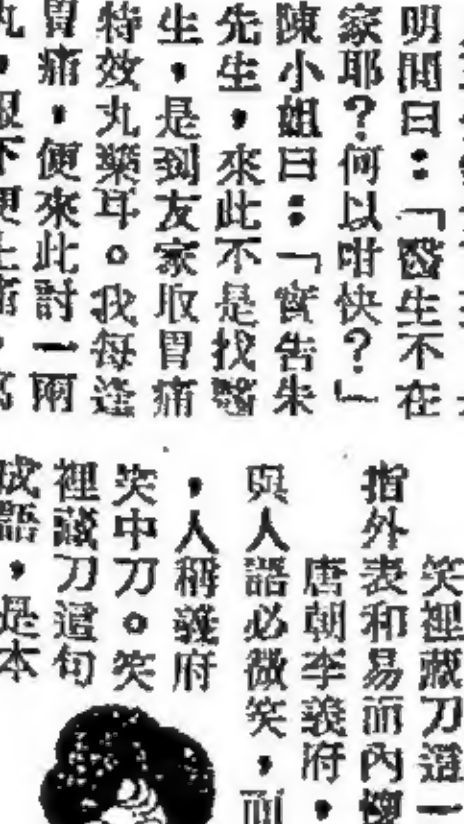 明聞曰：「醫生不在
家耶？何以咁快？」
陳小姐曰：「實告朱
先生，來此不是找醫
生，是到友家取胃痛
特效丸藥耳。我每逢
胃痛，便來此討一兩
笑裡藏刀這一
指外表和易而內
唐朝李義府，
與人語必微笑，而
，人稱義府
笑中刀。笑
裡藏刀這句
成語，是本